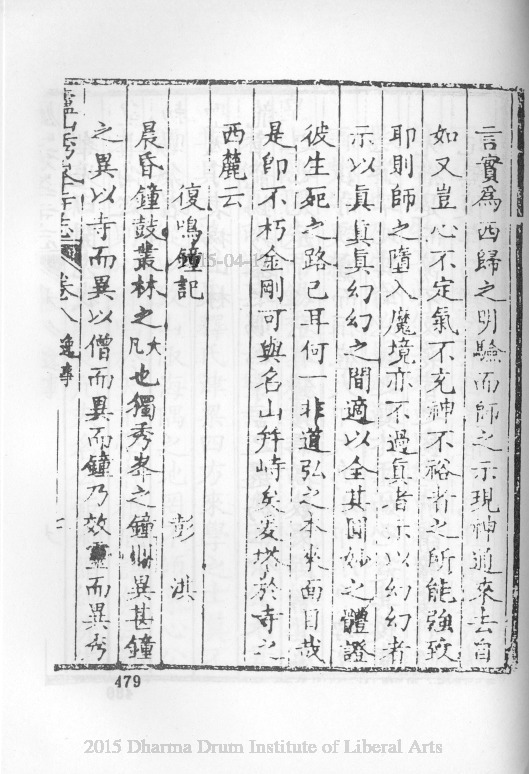 言實爲西歸之明驗而師之示現神通來去自
如又豈心不定氣不充神不裕者之所能強致
耶則師之墮入魔境亦不過眞者示以幻幻者
示以眞眞眞幻幻之間適以全其圓妙之體證
彼生死之路已耳何非道弘之本來面目哉
是卽不朽金剛可與名山并峙矣委塔於寺之
西麓云
復鳴鐘記 彭淇
晨昏鐘鼓叢林之大凡也獨秀峯之鐘則異甚鐘
之異以寺而異以僧而異而鐘乃效靈而異秀
廬山秀峯寺志 卷八 逸事
479
2015-04-1
2015 Dharma Drum Institute of Liberal Arts